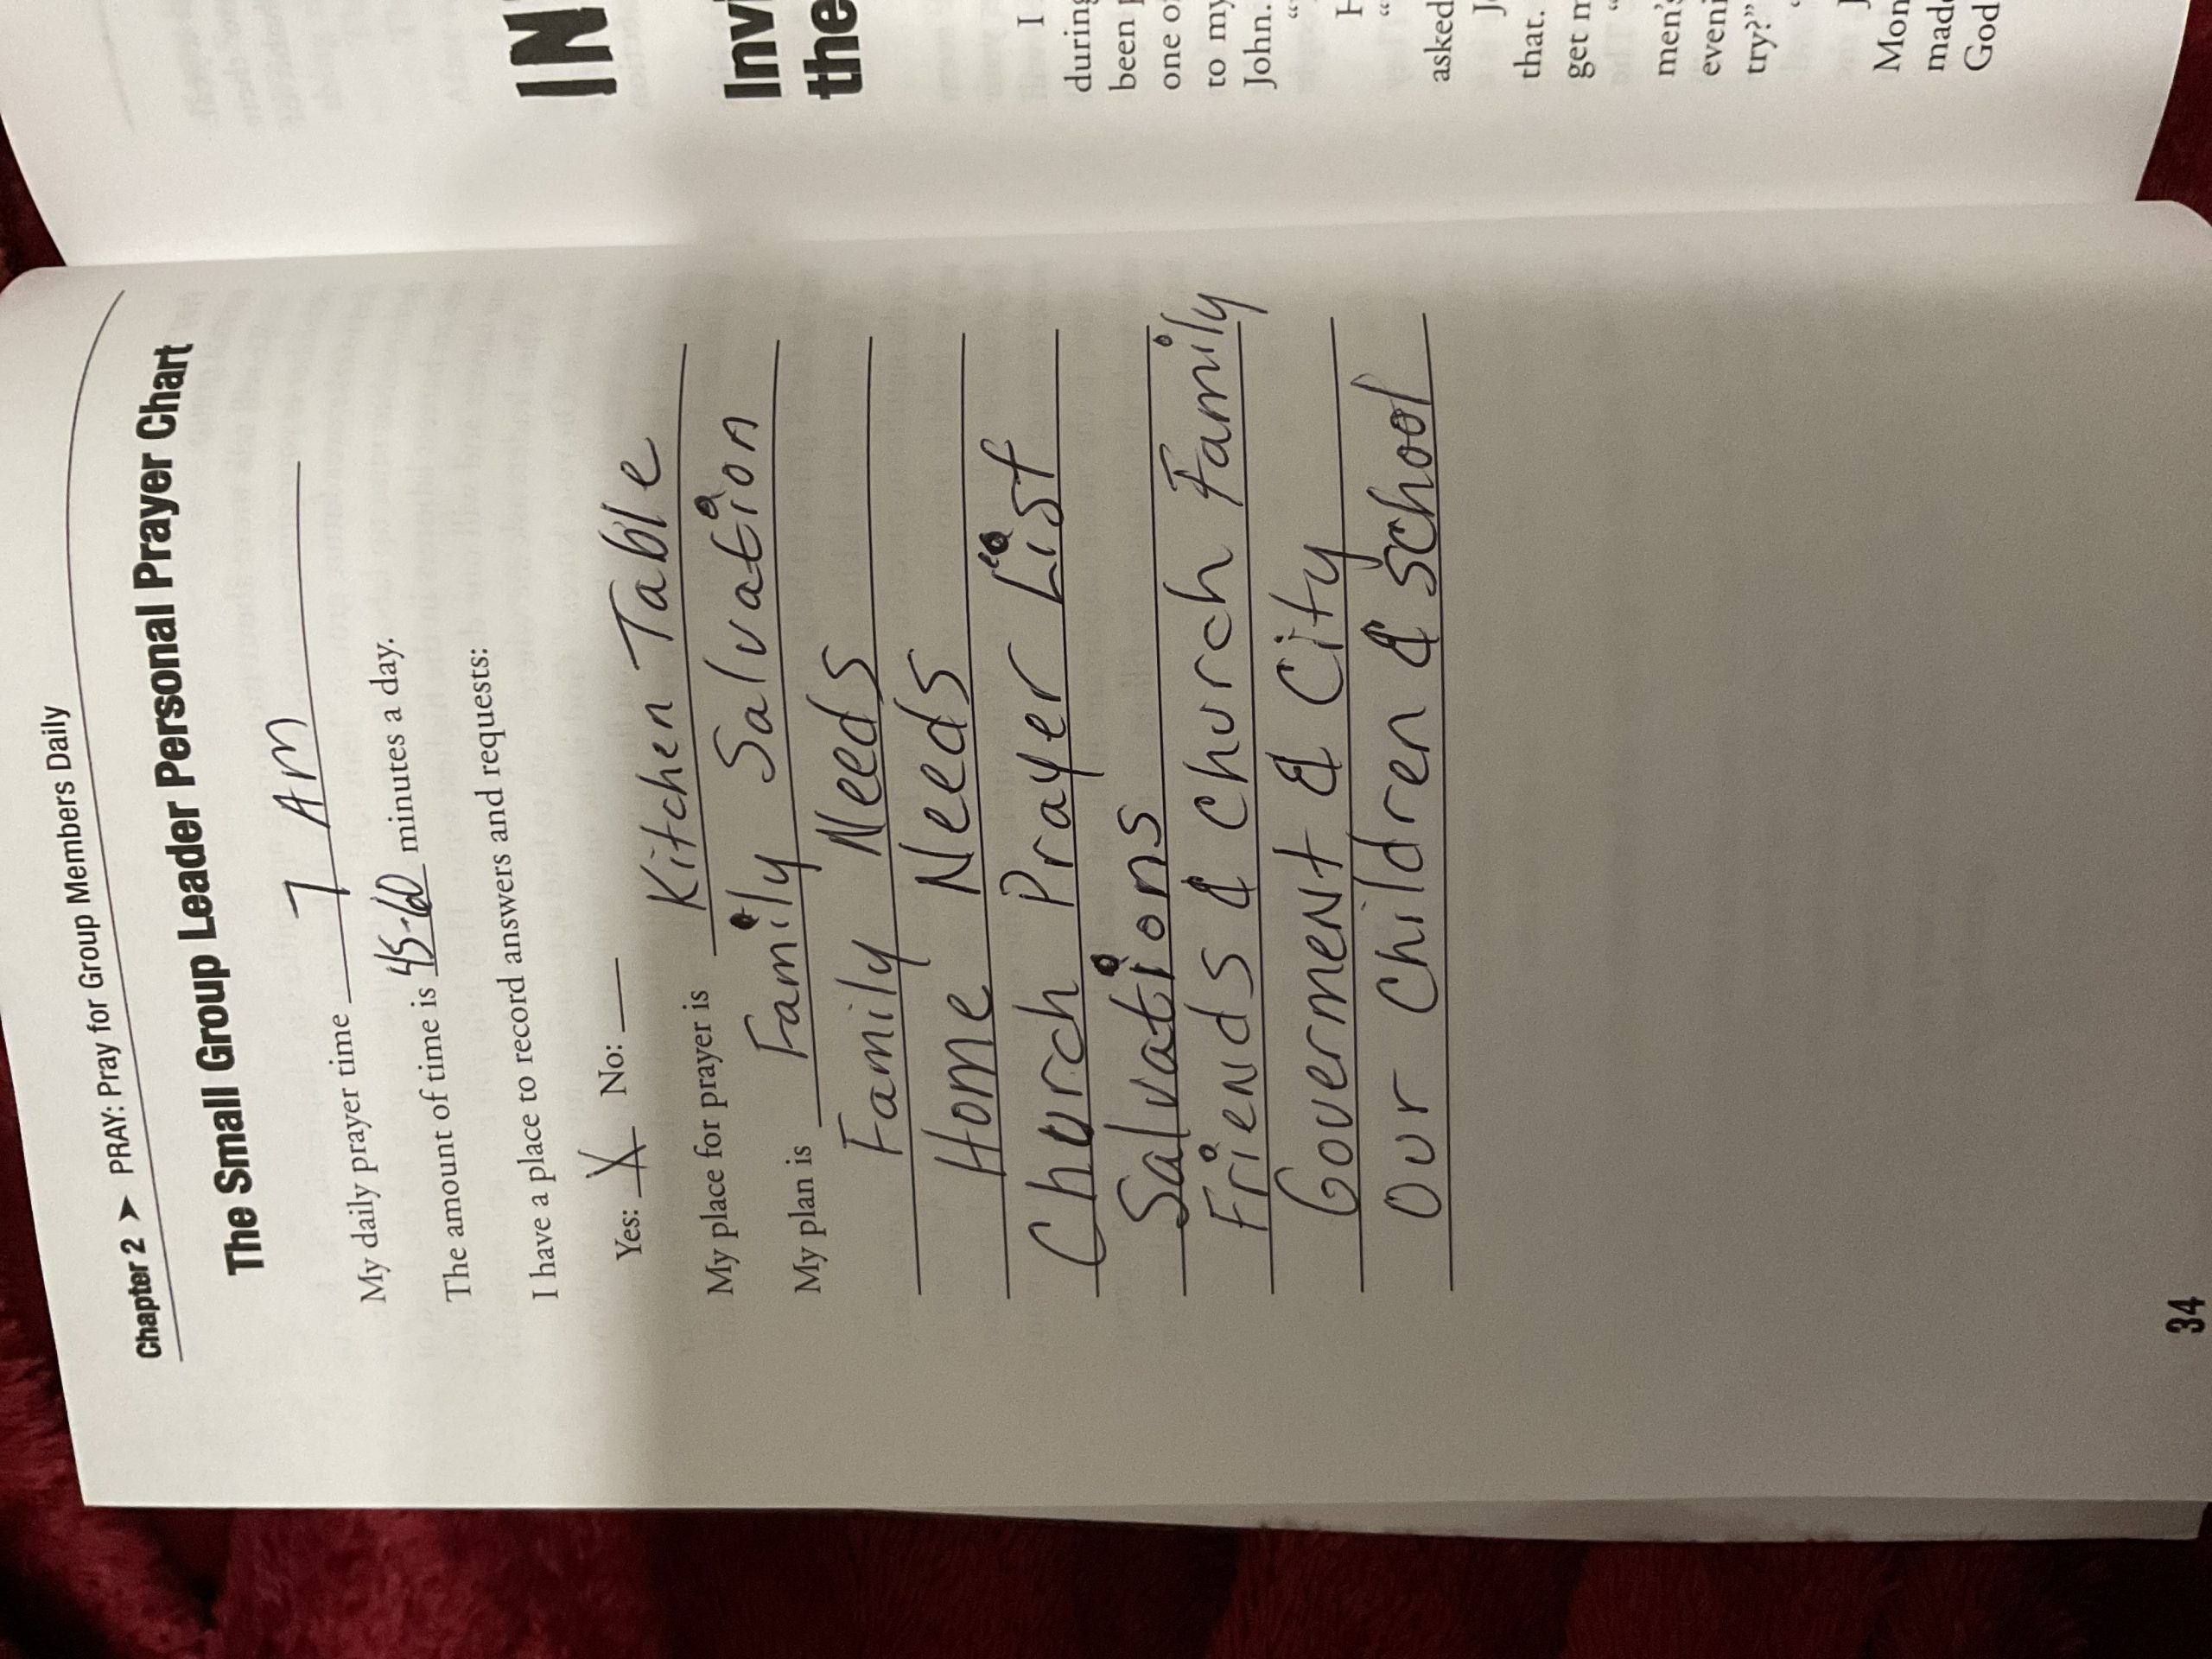 Chapter 2 ➤ PRAY: Pray for Group Members Daily
The Small Group Leader Personal Prayer Chart
My daily prayer time 7 AM
The amount of time is 45-60 minutes a day.
I have a place to record answers and requests:
Yes: X No: __
My place for prayer is Kitchen Table
My plan is Family Salvation
Family Needs
Home Needs
Church Prayer List
Salvations
Friends & Church Family
Government & City
Our Children & School
34
IN
Inv
the
I
during
been
one o
to my
John.
“
H
“
asked
J
that.
get m
“
men’s
eveni
try?”
“
J
Mon
made
God